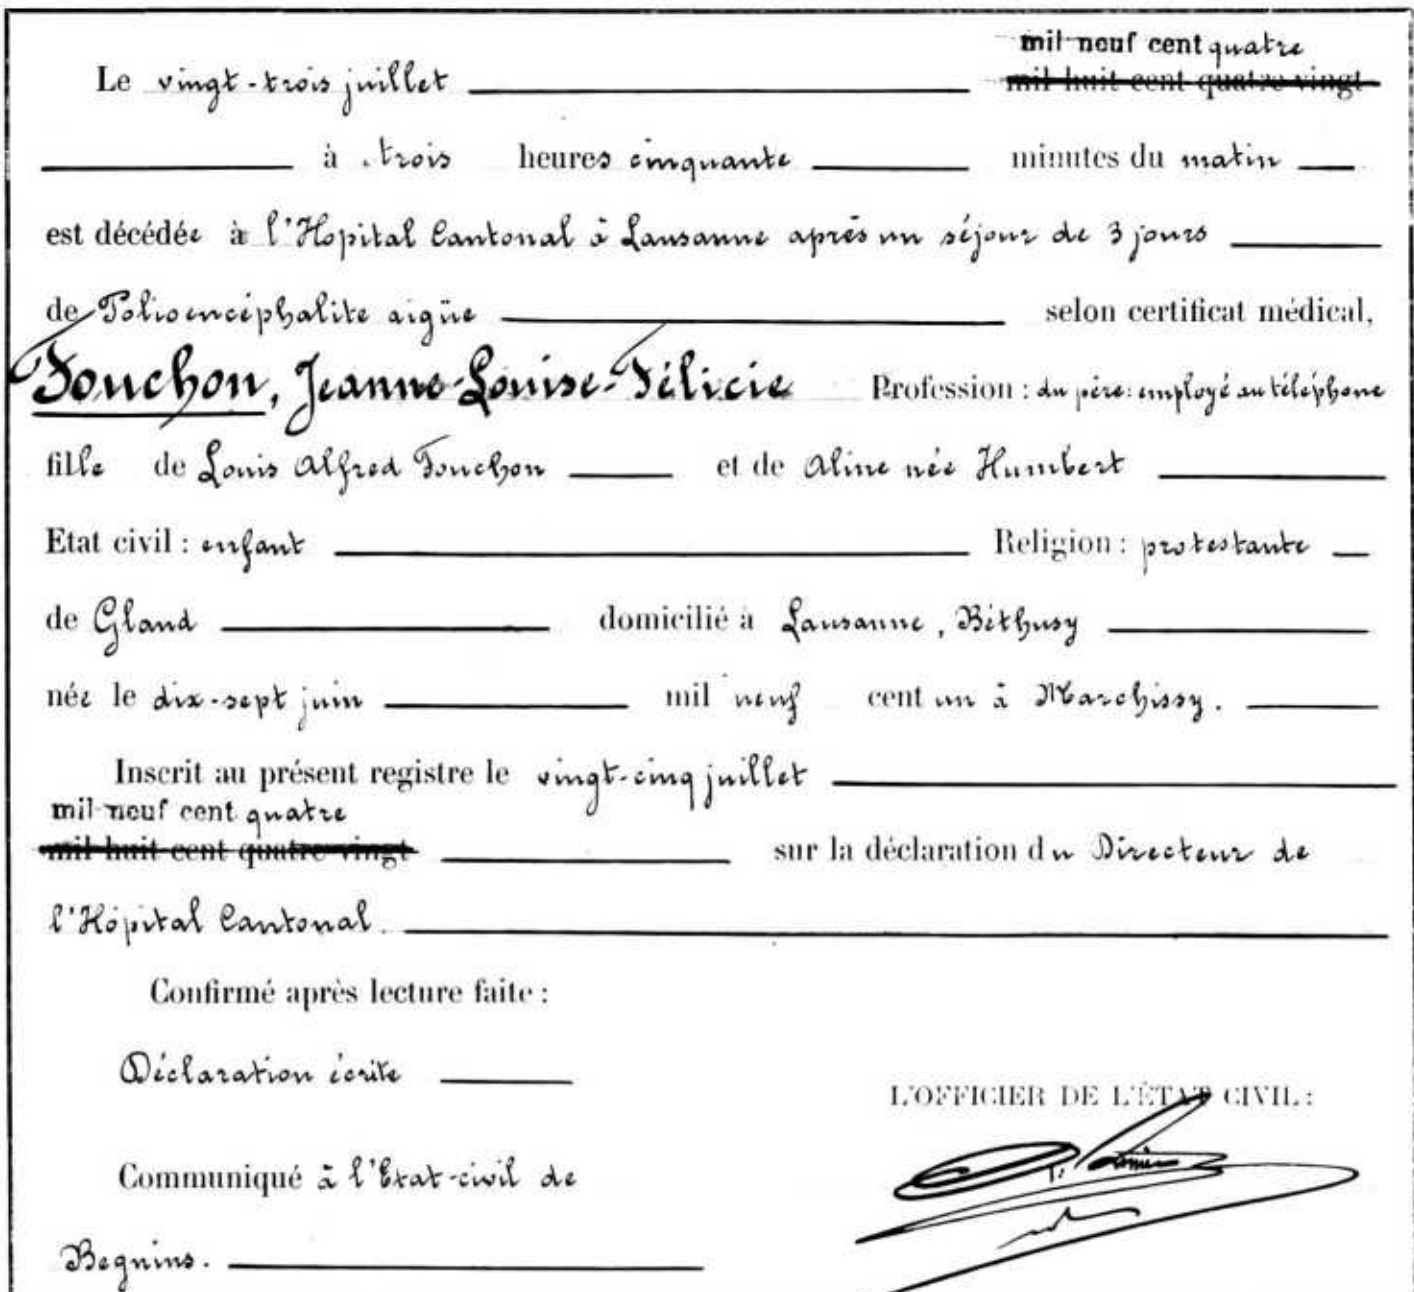 mil neuf cent quatre
Le vingt-trois juillet mil huit cent quatre-vingt
à trois heures cinquante minutes du matin
est décédée à l'Hopital Cantonal à Lausanne après un séjour de 3 jours
de Polioencéphalite aigüe selon certificat médical,
Fouchon, Jeanne-Louise-Félicie Profession : du père: employé au téléphone
fille de Louis Alfred Fouchon et de Aline née Humbert
Etat civil : enfant Religion : protestante
de Gland domicilié à Lausanne, Béthusy
née le dix-sept juin mil neuf cent un à Marchissy.
Inscrit au présent registre le vingt-cinq juillet
mil neuf cent quatre
mil huit cent quatre-vingt sur la déclaration du Directeur de
l'Hôpital Cantonal.
Confirmé après lecture faite :
Déclaration écrite
L'OFFICIER DE L'ÉTAT CIVIL :
Communiqué à l'Etat-civil de
Begnins.